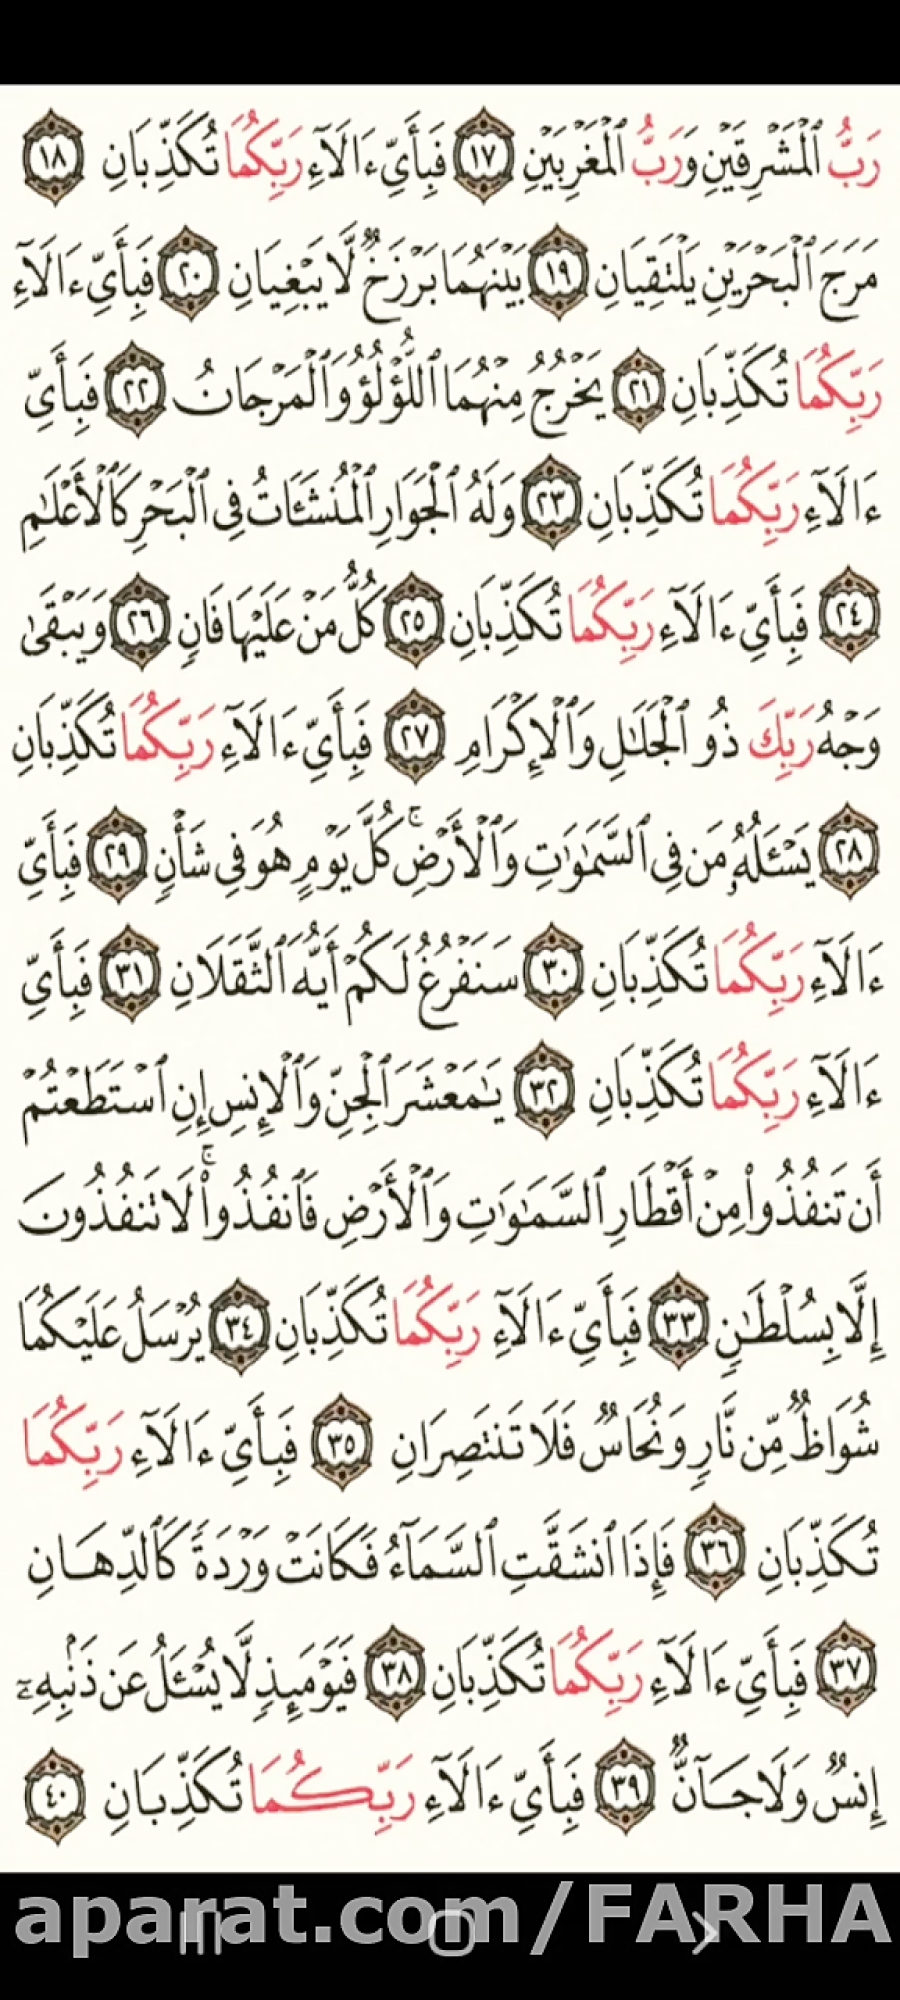 رَبُّ ٱلْمَشْرِقَيْنِ وَرَبُّ ٱلْمَغْرِبَيْنِ ١٧ فَبِأَيِّ ءَالَآءِ رَبِّكُمَا تُكَذِّبَانِ ١٨
مَرَجَ ٱلْبَحْرَيْنِ يَلْتَقِيَانِ ١٩ بَيْنَهُمَا بَرْزَخٌ لَّا يَبْغِيَانِ ٢٠ فَبِأَيِّ ءَالَآءِ
رَبِّكُمَا تُكَذِّبَانِ ٢١ يَخْرُجُ مِنْهُمَا ٱللُّؤْلُؤُ وَٱلْمَرْجَانُ ٢٢ فَبِأَيِّ
ءَالَآءِ رَبِّكُمَا تُكَذِّبَانِ ٢٣ وَلَهُ ٱلْجَوَارِ ٱلْمُنشَـَٔاتُ فِى ٱلْبَحْرِ كَٱلْأَعْلَٰمِ
٢٤ فَبِأَيِّ ءَالَآءِ رَبِّكُمَا تُكَذِّبَانِ ٢٥ كُلُّ مَنْ عَلَيْهَا فَانٍ ٢٦ وَيَبْقَىٰ
وَجْهُ رَبِّكَ ذُو ٱلْجَلَٰلِ وَٱلْإِكْرَامِ ٢٧ فَبِأَيِّ ءَالَآءِ رَبِّكُمَا تُكَذِّبَانِ
٢٨ يَسْـَٔلُهُۥ مَن فِى ٱلسَّمَٰوَٰتِ وَٱلْأَرْضِ ۚ كُلَّ يَوْمٍ هُوَ فِى شَأْنٍ ٢٩ فَبِأَيِّ
ءَالَآءِ رَبِّكُمَا تُكَذِّبَانِ ٣٠ سَنَفْرُغُ لَكُمْ أَيُّهَ ٱلثَّقَلَانِ ٣١ فَبِأَيِّ
ءَالَآءِ رَبِّكُمَا تُكَذِّبَانِ ٣٢ يَٰمَعْشَرَ ٱلْجِنِّ وَٱلْإِنسِ إِنِ ٱسْتَطَعْتُمْ
أَن تَنفُذُوا۟ مِنْ أَقْطَارِ ٱلسَّمَٰوَٰتِ وَٱلْأَرْضِ فَٱنفُذُوا۟ ۚ لَا تَنفُذُونَ
إِلَّا بِسُلْطَٰنٍ ٣٣ فَبِأَيِّ ءَالَآءِ رَبِّكُمَا تُكَذِّبَانِ ٣٤ يُرْسَلُ عَلَيْكُمَا
شُوَاظٌ مِّن نَّارٍ وَنُحَاسٌ فَلَا تَنتَصِرَانِ ٣٥ فَبِأَيِّ ءَالَآءِ رَبِّكُمَا
تُكَذِّبَانِ ٣٦ فَإِذَا ٱنشَقَّتِ ٱلسَّمَآءُ فَكَانَتْ وَرْدَةً كَٱلدِّهَانِ
٣٧ فَبِأَيِّ ءَالَآءِ رَبِّكُمَا تُكَذِّبَانِ ٣٨ فَيَوْمَئِذٍ لَّا يُسْـَٔلُ عَن ذَنۢبِهِۦٓ
إِنسٌ وَلَا جَآنٌّ ٣٩ فَبِأَيِّ ءَالَآءِ رَبِّكُمَا تُكَذِّبَانِ ٤٠
aparat.com/FARHA